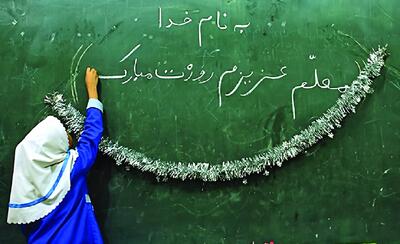 به نام خدا
معلّم عزیزم روزت مبارک